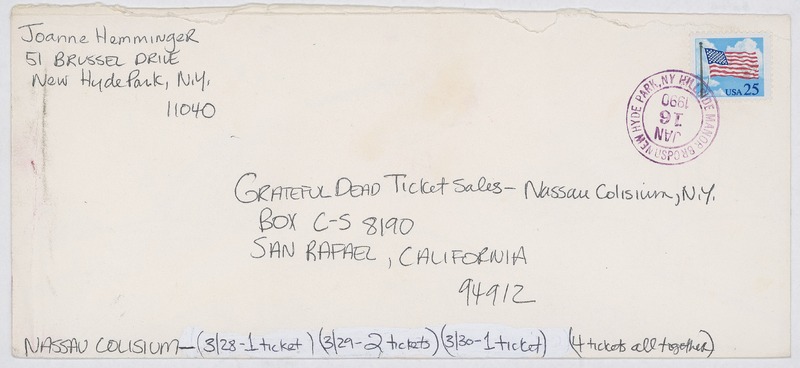 Joanne Hemminger
51 BRUSSEL DRIVE
New Hyde Park, N.Y.
11040
USA 25
NEW HYDE PARK, NY HILLSIDE MANOR BR USPO
JAN
16
1990
GRATEFUL DEAD Ticket Sales - Nassau Colisium, N.Y.
BOX C-S 8190
SAN RAFAEL, CALIFORNIA
94912
NASSAU COLISIUM - (3/28 - 1 ticket) (3/29 - 2 tickets) (3/30 - 1 ticket) (4 tickets all together)